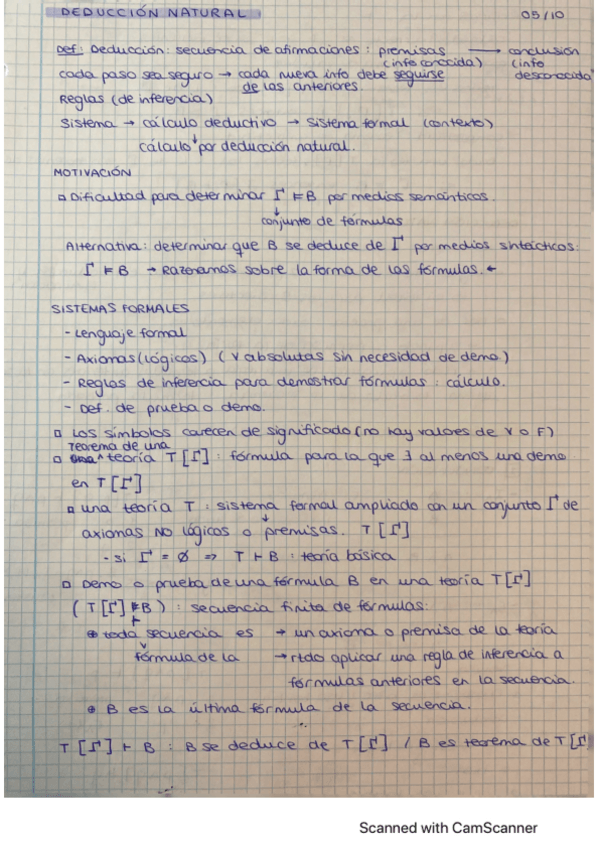 DEDUCCIÓN NATURAL 05/10
Def: Deducción: secuencia de afirmaciones: premisas → conclusión
(info conocida) (info
cada paso sea seguro → cada nueva info debe seguirse desconocida)
de las anteriores
Reglas (de inferencia)
Sistema → cálculo deductivo → Sistema formal (contexto)
↓
cálculo por deducción natural.
MOTIVACIÓN
□ Dificultad para determinar Γ ⊨ B por medios semánticos.
↓
conjunto de fórmulas
Alternativa: determinar que B se deduce de Γ por medios sintácticos:
Γ ⊨ B → Razonamos sobre la forma de las fórmulas. ←
SISTEMAS FORMALES
- Lenguaje formal
- Axiomas (lógicos) (V absolutas sin necesidad de demo)
- Reglas de inferencia para demostrar fórmulas: cálculo.
- Def. de prueba o demo.
□ Los símbolos carecen de significado (no hay valores de V o F)
Teorema de una
□ ^ teoría T[Γ]: fórmula para la que ∃ al menos una demo
en T[Γ]
□ una teoría T: sistema formal ampliado con un conjunto Γ de
↓
axiomas NO lógicos o premisas. T[Γ]
- si Γ = ∅ ⇒ T ⊢ B: teoría básica
□ Demo o prueba de una fórmula B en una teoría T[Γ]
(T[Γ] ⊢ B): secuencia finita de fórmulas:
⊕ toda secuencia es → un axioma o premisa de la teoría
fórmula de la → rtdo aplicar una regla de inferencia a
fórmulas anteriores en la secuencia.
⊕ B es la última fórmula de la secuencia.
T[Γ] ⊢ B: B se deduce de T[Γ] / B es teorema de T[Γ]
Scanned with CamScanner